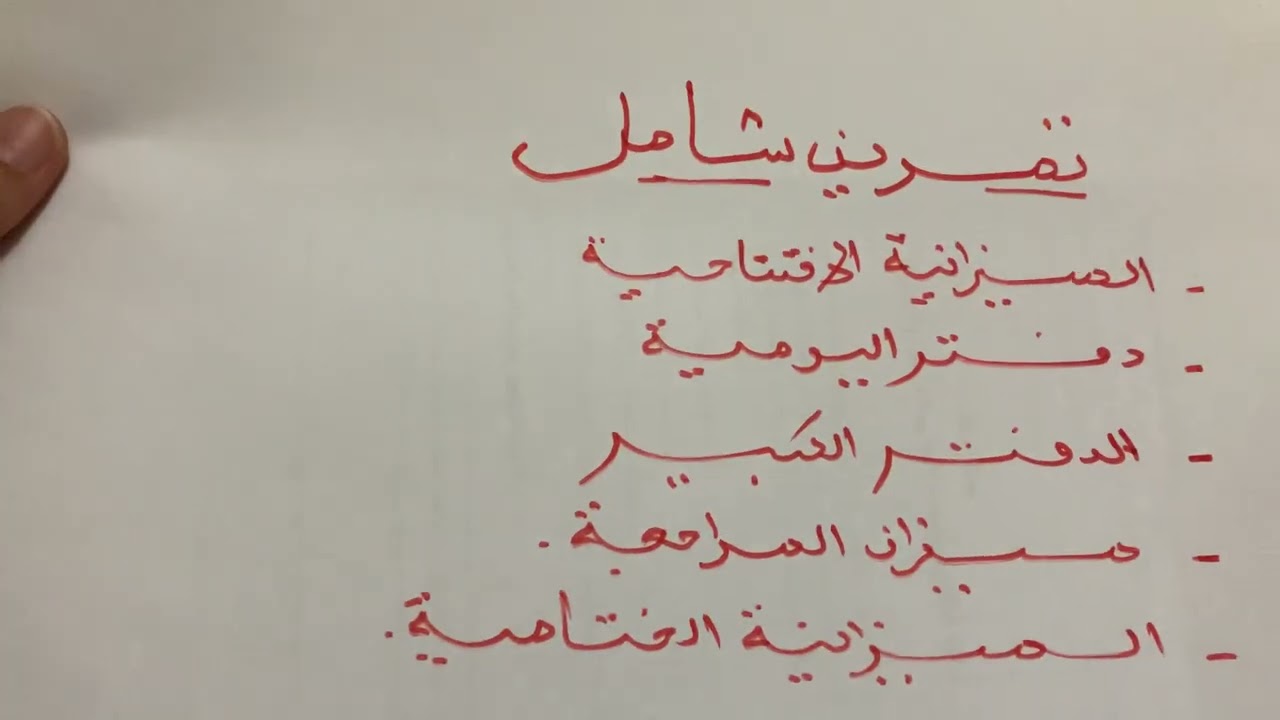 تمرين شامل
- الميزانية الافتتاحية
- دفتر اليومية
- الدفتر الكبير
- ميزان المراجعة.
- الميزانية الختامية.